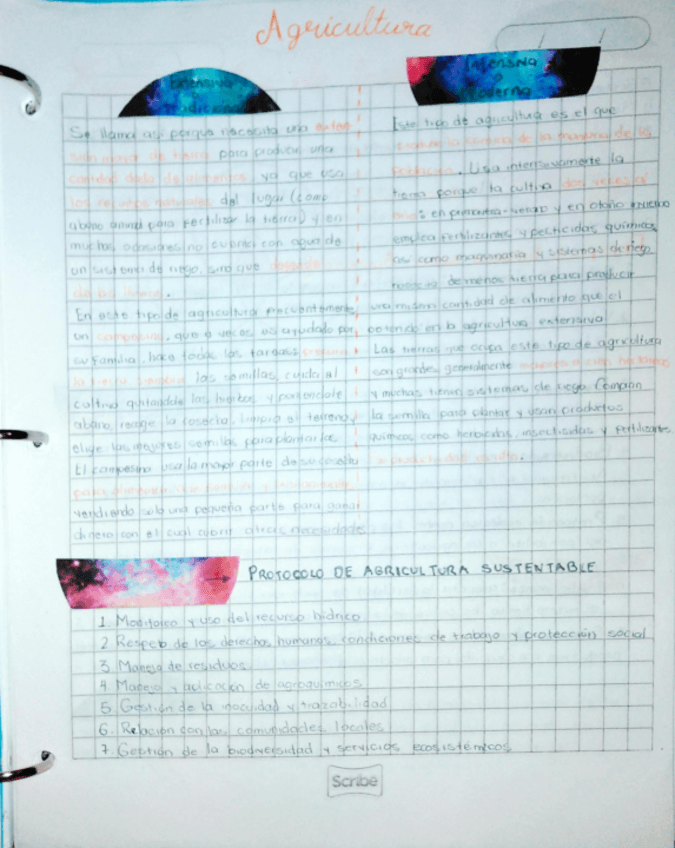 Agricultura
Extensiva
o
Tradicional
Se llama así porque necesita una exten-
sión mayor de tierra para producir una
cantidad dada de alimentos ya que usa
los recursos naturales del lugar (como
abono animal para fertilizar la tierra) y en
muchas ocasiones no cuenta con agua de
un sistema de riego, sino que depende
de la lluvia.
En este tipo de agricultura frecuentemente
un campesino, que a veces es ayudado por
su familia, hace todas las tareas:
la tierra, siembra las semillas, cuida el
cultivo quitandole las hierbas y poniendole
abono, recoge la cosecha, limpia el terreno y
elige las mejores semillas para plantarlas
El campesino usa la mayor parte de su cosecha
para alimentar a su familia y
vendiendo solo una pequeña parte para ganar
dinero con el cual cubrir otras necesidades
Intensiva
o
Moderna
Este tipo de agricultura es el que
la mayoria de la
población. Usa intensivamente la
tierra porque la cultiva dos veces al
año: en primavera-verano y en otoño invierno
emplea fertilizantes y pesticidas, químicos,
asi como maquinaria y sistemas de riego,
necesita de menos tierra para producir
una misma cantidad de alimento que el
obtenido en la agricultura extensiva
Las tierras que ocupa este tipo de agricultura
son grandes, generalmente mayores a cien hectáreas
y muchas tienen sistemas de riego. Compran
la semilla para plantar y usan productos
químicos como herbicidas, insecticidas y fertilizantes
La productividad es alta.
→ PROTOCOLO DE AGRICULTURA SUSTENTABLE
1. Monitoreo y uso del recurso hídrico
2. Respeto de los derechos humanos, condiciones de trabajo y protección social
3. Manejo de residuos
4. Manejo y aplicación de agroquímicos
5. Gestión de la inocuidad y trazabilidad
6. Relación con las comunidades locales
7. Gestión de la biodiversidad y servicios ecosistémicos
Scribe